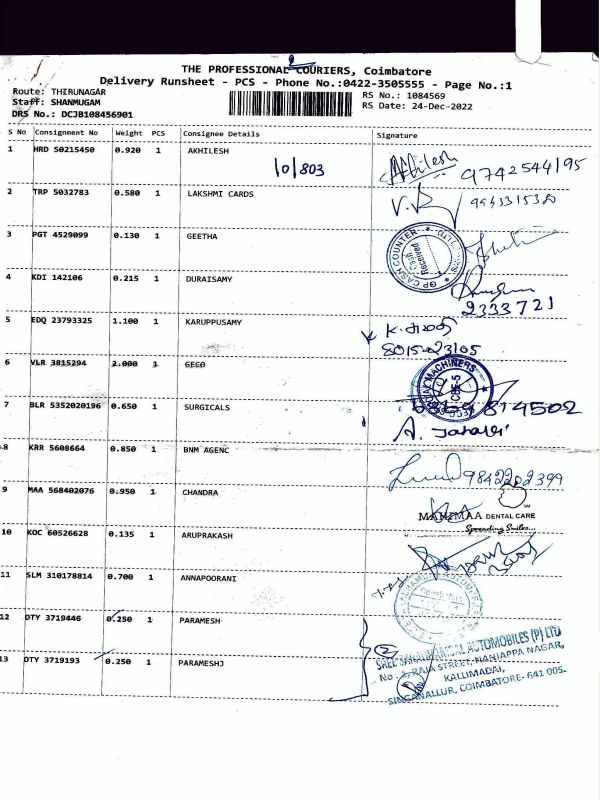 THE PROFESSIONAL COURIERS, Coimbatore
Delivery Runsheet - PCS - Phone No.:0422-3505555 - Page No.:1
Route: THIRUNAGAR
Staff: SHANMUGAM
DRS No.: DCJB108456901
RS No.: 1084569
RS Date: 24-Dec-2022
S No Consignment No Weight PCS Consignee Details Signature
1 HRD 50215450 0.920 1 AKHILESH 10/803 Akhilesh 9742544195
2 TRP 5032783 0.580 1 LAKSHMI CARDS
3 PGT 4529099 0.130 1 GEETHA
CASH COUNTER
Received
4 KDI 142106 0.215 1 DURAISAMY
2333721
5 EDQ 23793325 1.100 1 KARUPPUSAMY
6 VLR 3815294 2.000 1 GECO
MACHINERS
CBE-5
7 BLR 5352020196 0.650 1 SURGICALS 814502
8 KRR 5608664 0.850 1 BNM AGENC 9842202399
9 MAA 568402076 0.950 1 CHANDRA
DENTAL CARE
Spreading Smiles...
10 KOC 60526628 0.135 1 ARUPRAKASH
11 SLM 310178814 0.700 1 ANNAPOORANI
12 DTY 3719446 0.250 1 PARAMESH
13 DTY 3719193 0.250 1 PARAMESHJ
2
AUTOMOBILES (P) LTD
RAJA STREET, NANJAPPA NAGAR,
KALLIMADAI,
SINGANALLUR, COIMBATORE- 641 005.